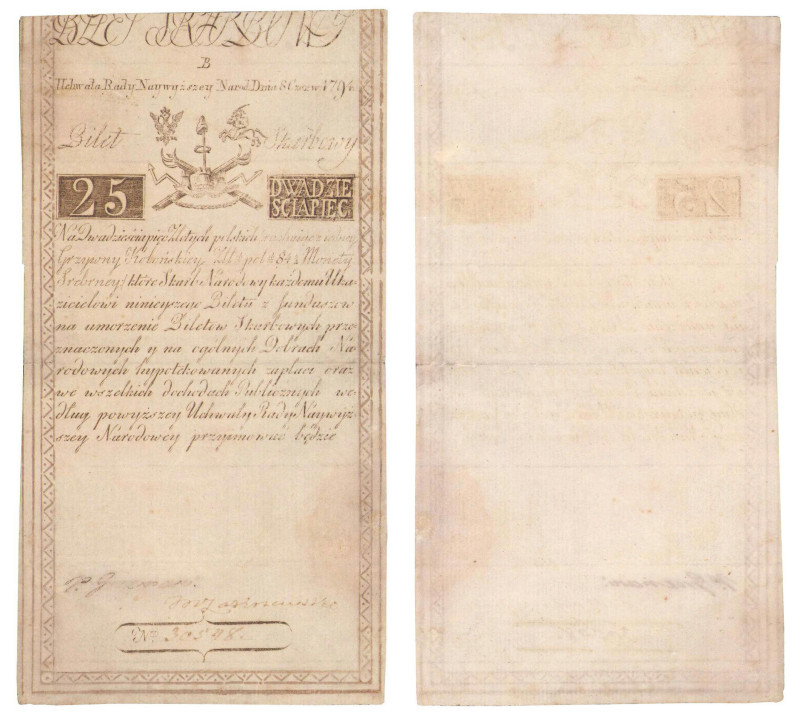 BILET SKARBOWY
B
Uchwała Rady Naywyższey Narod: Dnia 8 Czerw: 1794
Bilet Skarbowy
25 DWADZIE
ŚCIAPIĘĆ
Na Dwadzieściapięć Złotych polskich
Grzywny Kolońskiey Monetą
Srebrney któré Skarb Narodowy każdemu Oka-
zicielowi ninieyszego Biletu z funduszow
na umorzenie Biletow Skarbowych prze-
znaczonych y na ogólnych Dobrach Na-
rodowych hypotekowanych zapłaci oraz
we wszelkich dochodach Publicznych we-
dług powyższey Uchwały Rady Naywyż-
szey Narodowey przyjmować będzie
P. Grozmani.
No. 30548